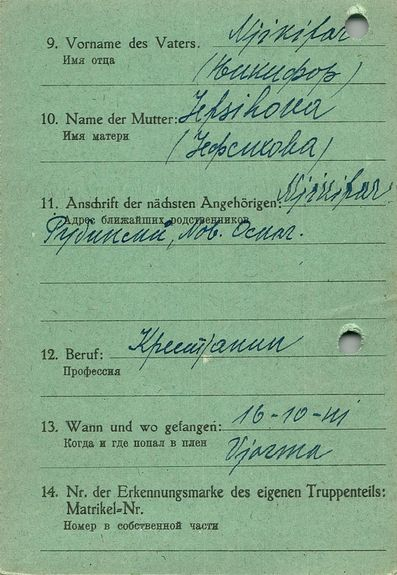 9. Vorname des Vaters. Njikifar
Имя отца
(Никифор)
10. Name der Mutter: Jefsihova
Имя матери
(Ефсихова)
11. Anschrift der nächsten Angehörigen: Njikifar
Адрес ближайших родственников
Рубинский, Nov.
12. Beruf: Крестјанин
Профессия
13. Wann und wo gefangen: 16-10-41
Когда и где попал в плен
Vjazma
14. Nr. der Erkennungsmarke des eigenen Truppenteils:
Matrikel-Nr.
Номер в собственной части